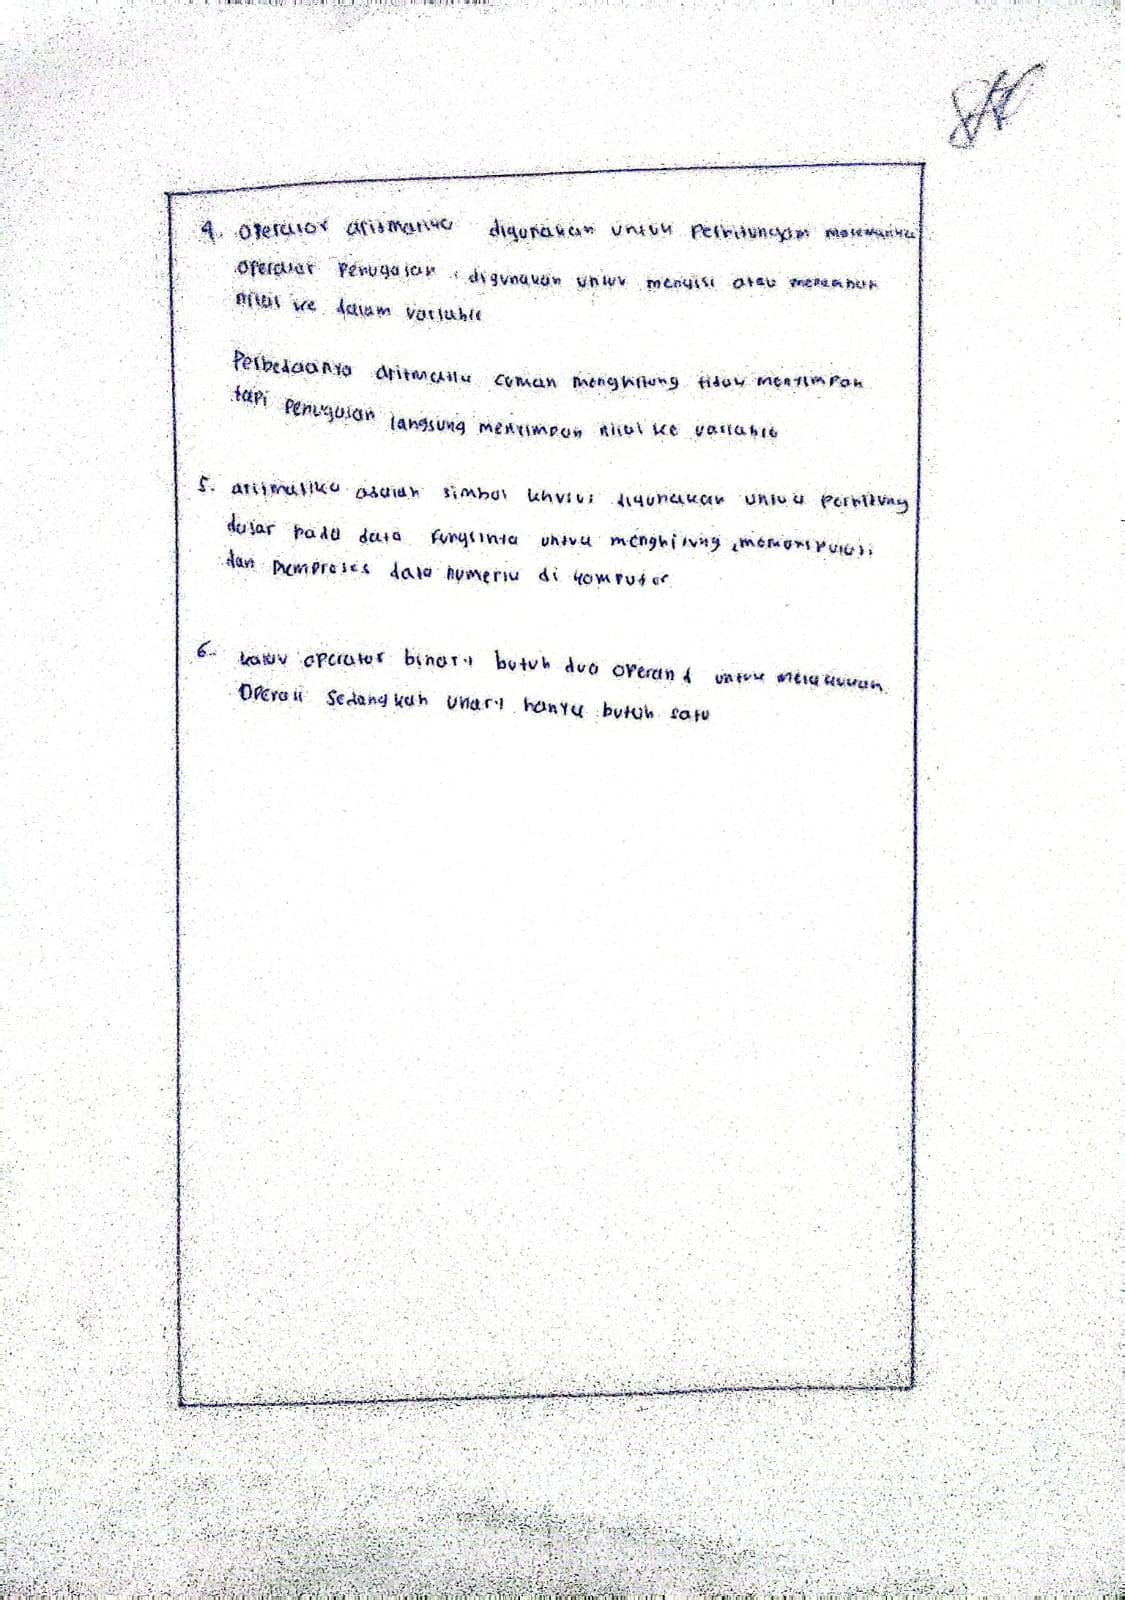 4. Operator aritmatika digunakan untuk Perhitungan matematika
operator Penugasan : digunakan untuk mengisi atau
nilai ke dalam variable
Perbedaanya aritmatika cuman menghitung tidak menyimpan
tapi Penugasan langsung menyimpan nilai ke variable
5. aritmatika adalah simbol khusus digunakan untuk perhitung
dasar pada data fungsinya untuk menghitung, memanipulasi
dan memproses data numerik di komputer
6. kalau operator binary butuh dua operand untuk melakukan
Operasi Sedangkan unary hanya butuh satu